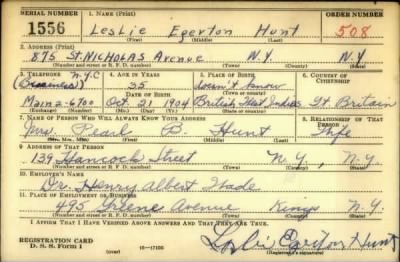 SERIAL NUMBER 1. NAME (Print) ORDER NUMBER
1556 Leslie Egerton Hunt 508
(First) (Middle) (Last)
2. ADDRESS (Print)
875 St. NICHOLAS Avenue N.Y. N.Y
(Number and street or R. F. D. number) (Town) (County) (State)
3. TELEPHONE N.Y.C 4. AGE IN YEARS 5. PLACE OF BIRTH 6. COUNTRY OF CITIZENSHIP
35 Doesn't Know
DATE OF BIRTH (Town or county)
Main 2-6700 Oct. 21 1904 British West Indies Gt. Britain
(Exchange) (Number) (Mo.) (Day) (Yr.) (State or country)
7. NAME OF PERSON WHO WILL ALWAYS KNOW YOUR ADDRESS 8. RELATIONSHIP OF THAT PERSON
Mrs. Pearl B. Hunt Wife
(Mr., Mrs., Miss) (First) (Middle) (Last)
9. ADDRESS OF THAT PERSON
139 Hancock Street N.Y., N.Y.
(Number and street or R. F. D. number) (Town) (County) (State)
10. EMPLOYER'S NAME
Dr. Henry Albert Wade
11. PLACE OF EMPLOYMENT OR BUSINESS
495 Greene Avenue Kings N.Y.
(Number and street or R. F. D. number) (Town) (County) (State)
I AFFIRM THAT I HAVE VERIFIED ABOVE ANSWERS AND THAT THEY ARE TRUE.
REGISTRATION CARD
D. S. S. Form 1 (over) 16-17105 Leslie Egerton Hunt
(Registrant's signature)